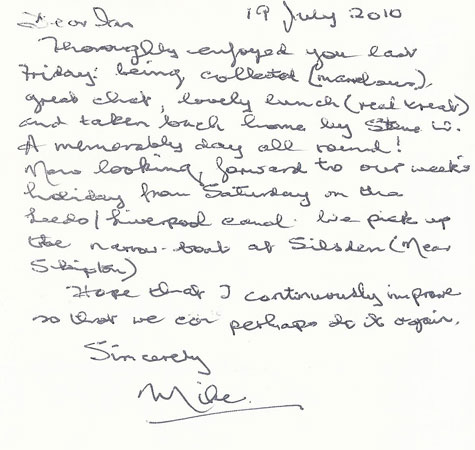 Dear Ian 19 July 2010
Thoroughly enjoyed you last
Friday: being collected (marvelous),
great chat, lovely lunch (real treat)
and taken back home by Steve
A memorably day all round!
Now looking forward to our week's
holiday from Saturday on the
Leeds/Liverpool canal. We pick up
the narrow-boat at Silsden (Near
Skipton)
Hope that I continuously improve
so that we can perhaps do it again.
Sincerely
Mike.